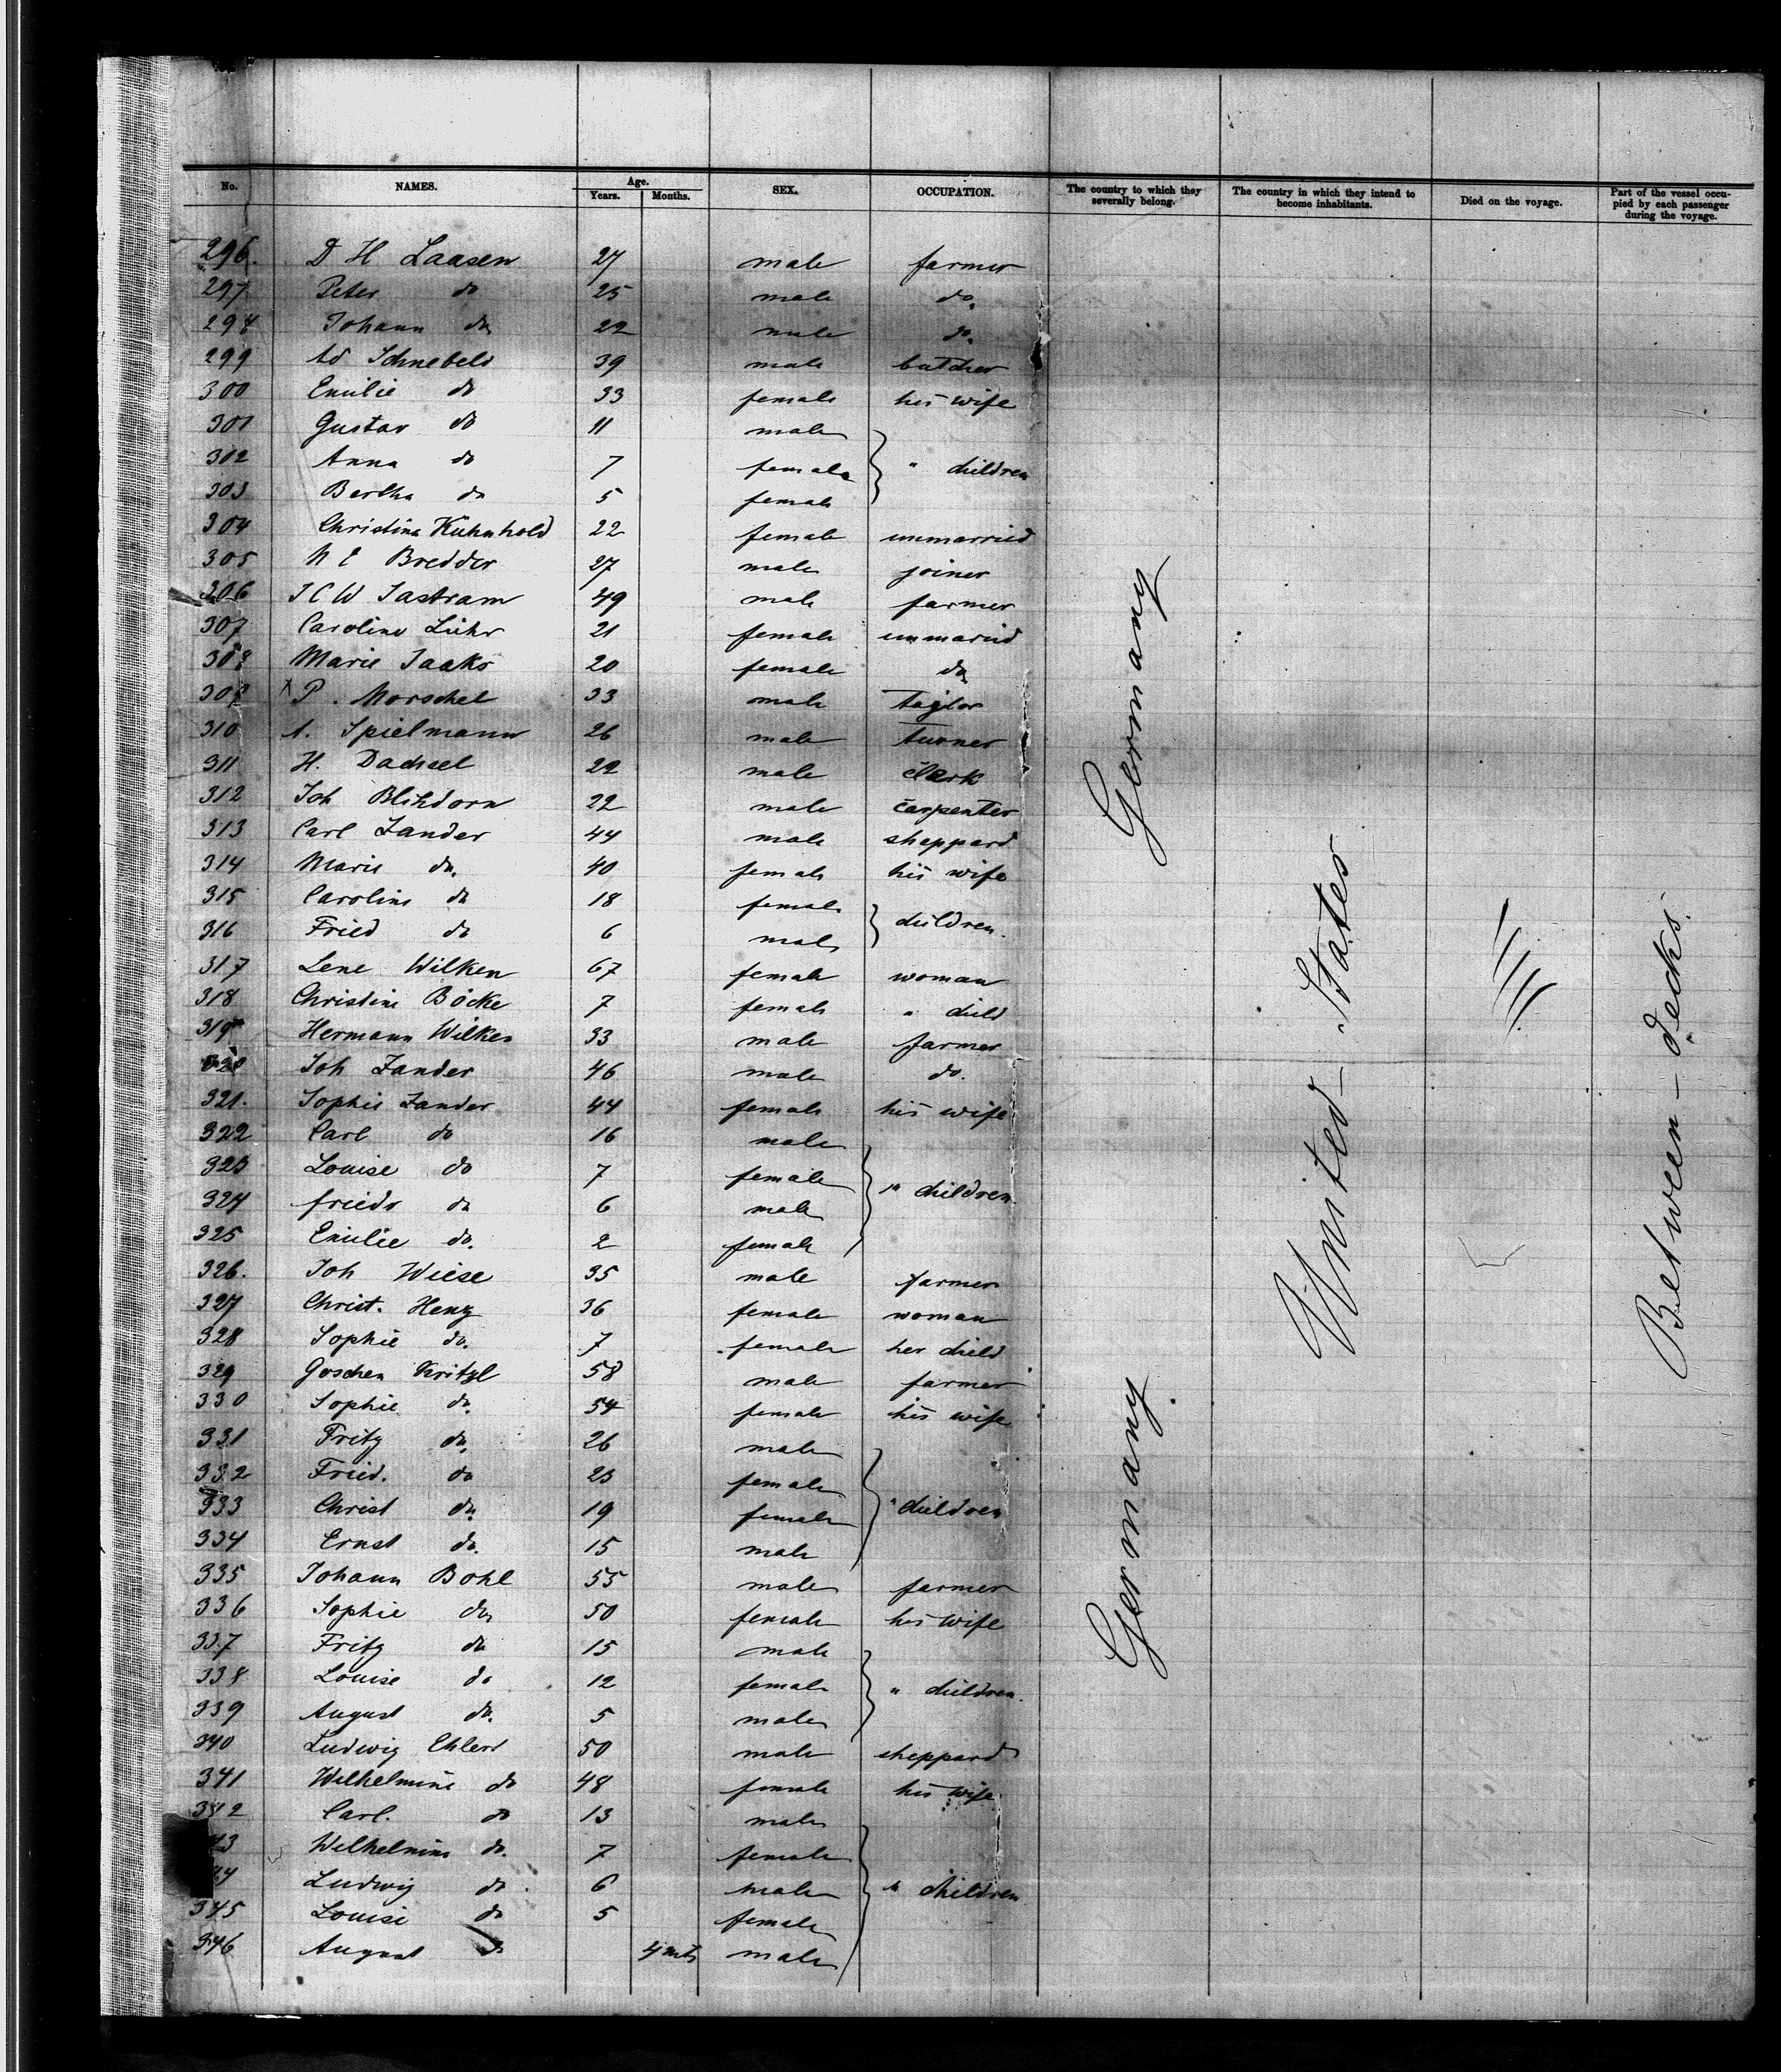 No. NAMES. Age. Years. Months. SEX. OCCUPATION. The country to which they severally belong. The country in which they intend to become inhabitants. Died on the voyage. Part of the vessel occupied by each passenger during the voyage.
296. D H Laasen 27 male farmer
297 Peter do 25 male do.
298 Johann do 22 male do.
299 Ad Schnebele 39 male butcher
300 Emilie do 33 female his wife
301 Gustav do 11 male
302 Anna do 7 female " children
303 Bertha do 5 female
304 Christina Kühnhold 22 female unmarried
305 N E Bredder 27 male joiner
306 J C W Jastram 49 male farmer
307 Caroline Lühr 21 female unmaried
308 Marie Jaaks 20 female do
309 x P. Morschel 33 male Taylor
310 A. Spielmann 26 male turner
311 H. Dachsel 22 male clerk
312 Joh Blihdorn 22 male carpenter
313 Carl Zander 44 male sheppard
314 Marie do. 40 female his wife
315 Caroline do 18 female children.
316 Fried do 6 male
317 Lene Wilken 67 female woman
318 Christine Böcke 7 female " child
319 Hermann Wilken 33 male farmer
320 Joh Zander 46 male do.
321. Sophie Zander 44 female his wife
322 Carl do 16 male
323 Louise do 7 female " children
324 friedr do 6 male
325 Emilie do. 2 female
326. Joh Wiese 35 male farmer
327 Christ. Henz 36 female woman
328 Sophie do. 7 female her child
329 Goschen Kritzl 58 male farmer
330 Sophie do. 54 female his wife
331 Fritz do. 26 male
332 Fried. do 23 female
333 Christ do. 19 female " children
334 Ernst do. 15 male
335 Johann Bohl 55 male farmer
336 Sophie do. 50 female his wife
337 Fritz do 15 male
338 Louise do 12 female " children.
339 August do. 5 male
340 Ludwig Ehlert 50 male sheppard
341 Wilhelmine do 48 female his wife
342 Carl. do 13 male
43 Wilhelmine do. 7 female
44 Ludwig do. 6 male " children
345 Louise do 5 female
346 August do 4 mts male
Germany
Germany
United States
Between-decks.